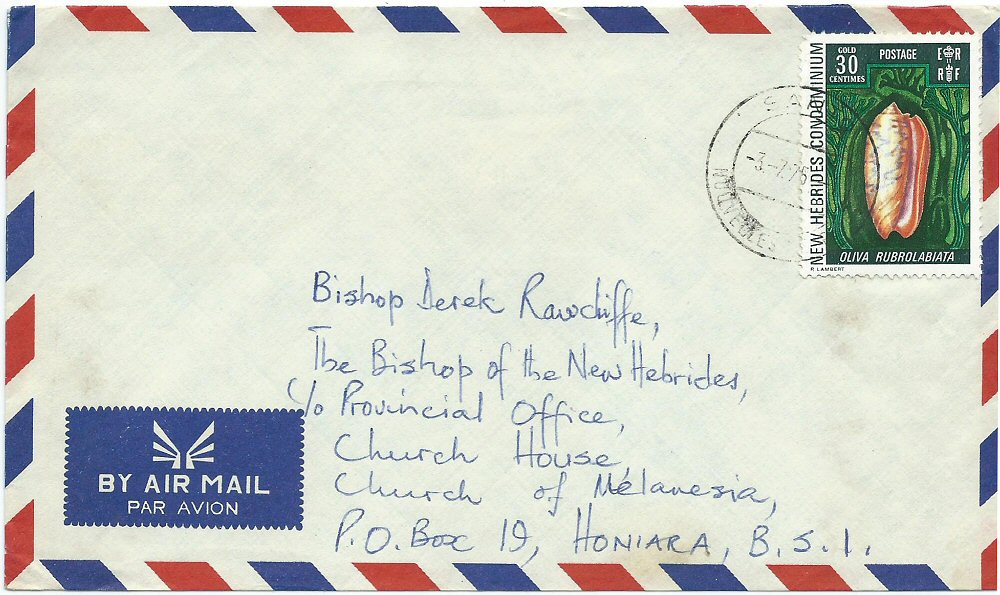 GOLD
30
CENTIMES
POSTAGE
E R
R F
NEW HEBRIDES CONDOMINIUM
OLIVA RUBROLABIATA
R LAMBERT
-3.-7.76
Bishop Derek Rawcliffe,
The Bishop of the New Hebrides,
c/o Provincial Office,
Church House,
Church of Melanesia,
P.O. Box 19, HONIARA, B.S.I.
BY AIR MAIL
PAR AVION